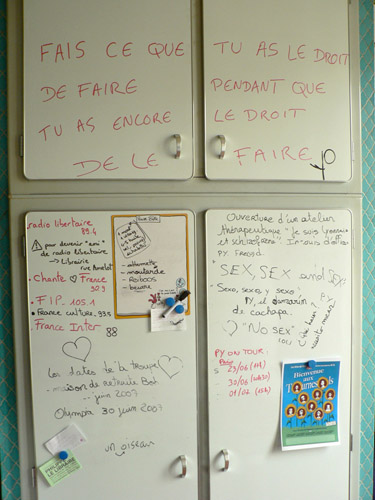 FAIS CE QUE
TU AS LE DROIT
DE FAIRE
PENDANT QUE
TU AS ENCORE
LE DROIT
DE LE
FAIRE
radio libertaire
89.4
pour devenir "ami"
de radio libertaire
→ Librairie
rue Amelot
• Chante France
90.9
• F.I.P. 105.1
• France culture, 93.5
France Inter
88
- allumettes
- moulandre
- Roibos
- beurre
les dates de la troupe
- maison de retraite Bast
juin 2007
Olympia 30 juin 2007
un oiseau
Ouverture d'un atelier
thérapeutique "Je suis lyonnais
et schizofrène".
PY Freud.
SEX, SEX and SEX
- Sexo, sexo, y sexo!
PY, el domarin
de cachapa.
"NO SEX"
PY ON TOUR:
Paris
S 23/06 (11H)
30/06 (10h30)
01/07 (15h)
Bienvenue
aux